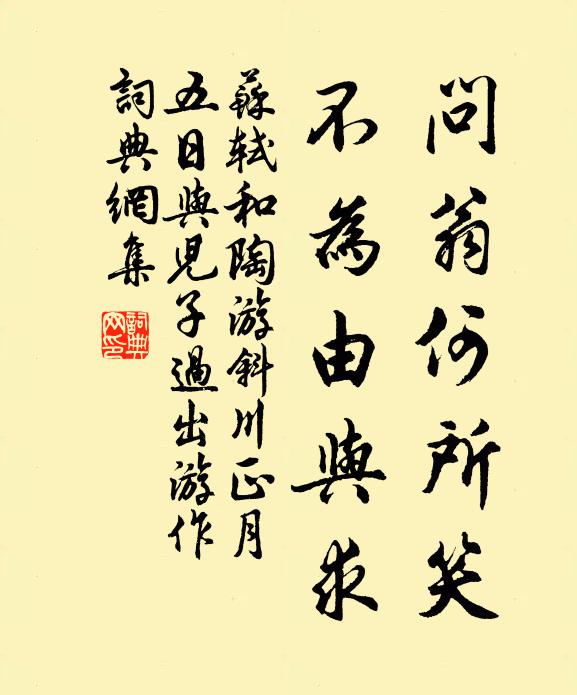 問翁何所笑
不為由與求
蘇軾和陶游斜川正月
五日與兒子過出游作
詞典網集
詞典
网印